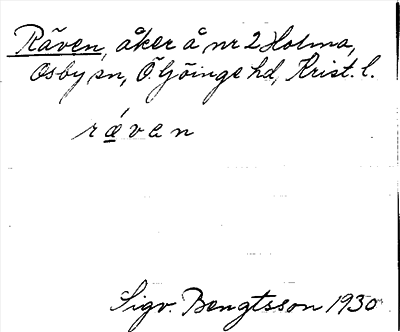 Räven, åker å nr 2 Holma,
Osby sn, Ö. Göinge hd, Krist. l.
rǽven
Sigv. Bengtsson 1930